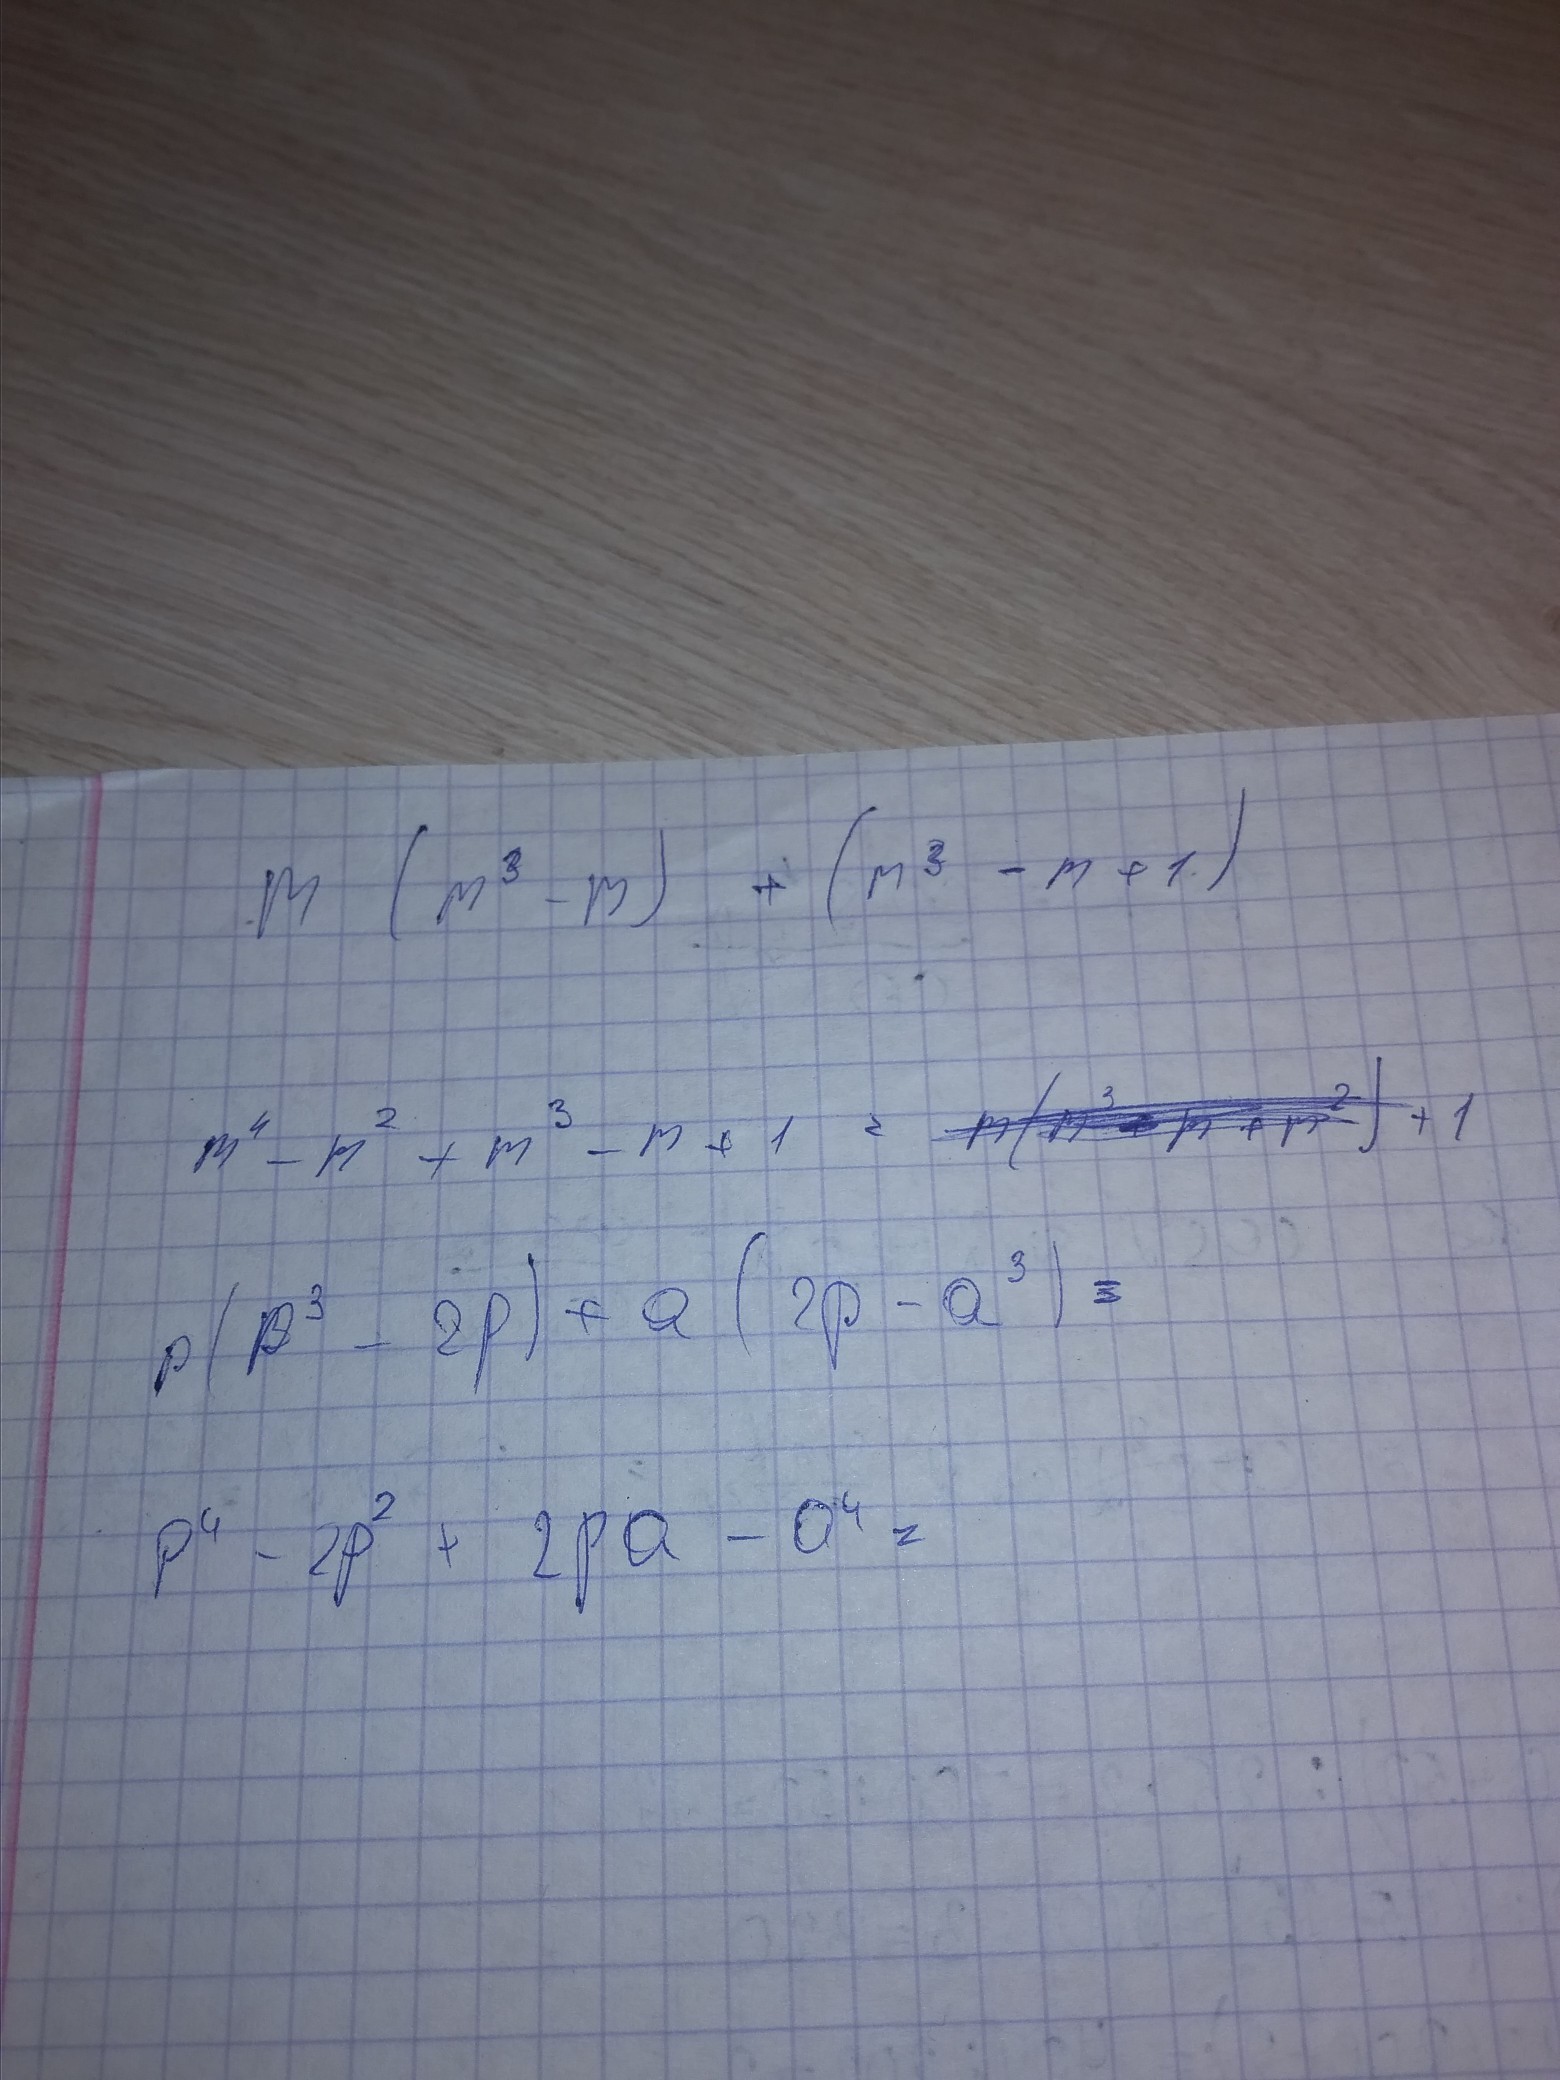 m (m³ - m) + (m³ - m + 1)
m⁴ - m² + m³ - m + 1 = m(m³ - m + m²) + 1
p(p³ - 2p) + a (2p - a³) =
p⁴ - 2p² + 2pa - a⁴ =